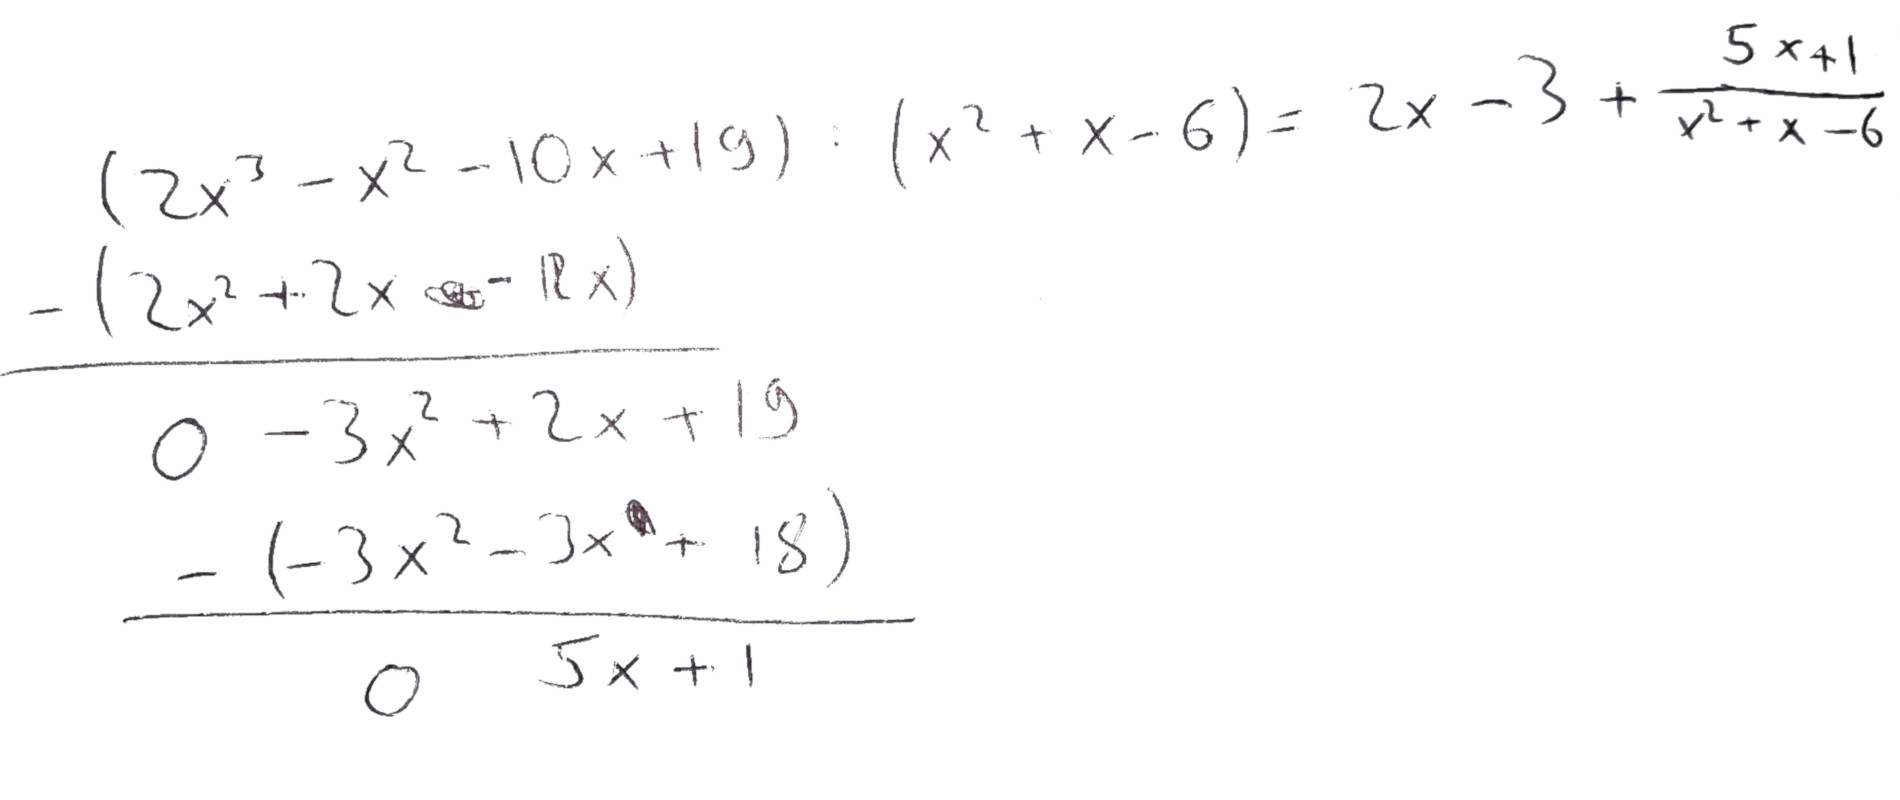 (2x³ - x² - 10x + 19) : (x² + x - 6) = 2x - 3 + (5x+1)/(x² + x - 6)
- (2x² + 2x - 12x)
0 - 3x² + 2x + 19
- (-3x² - 3x + 18)
0 5x + 1